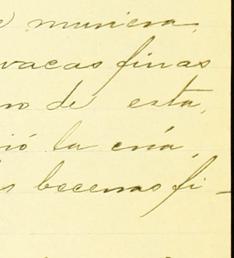 munera,
vacas finas
no de esta,
ió la cría,
s becerras fi-